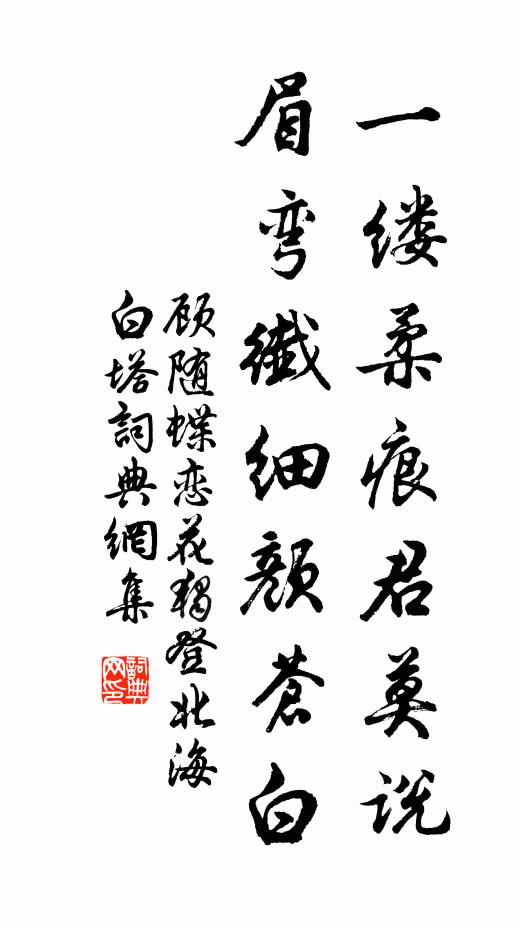 一缕柔痕君莫说
眉弯纖细颜蒼白
顾随蝶恋花独登北海
白塔詞典網集
詞典網印